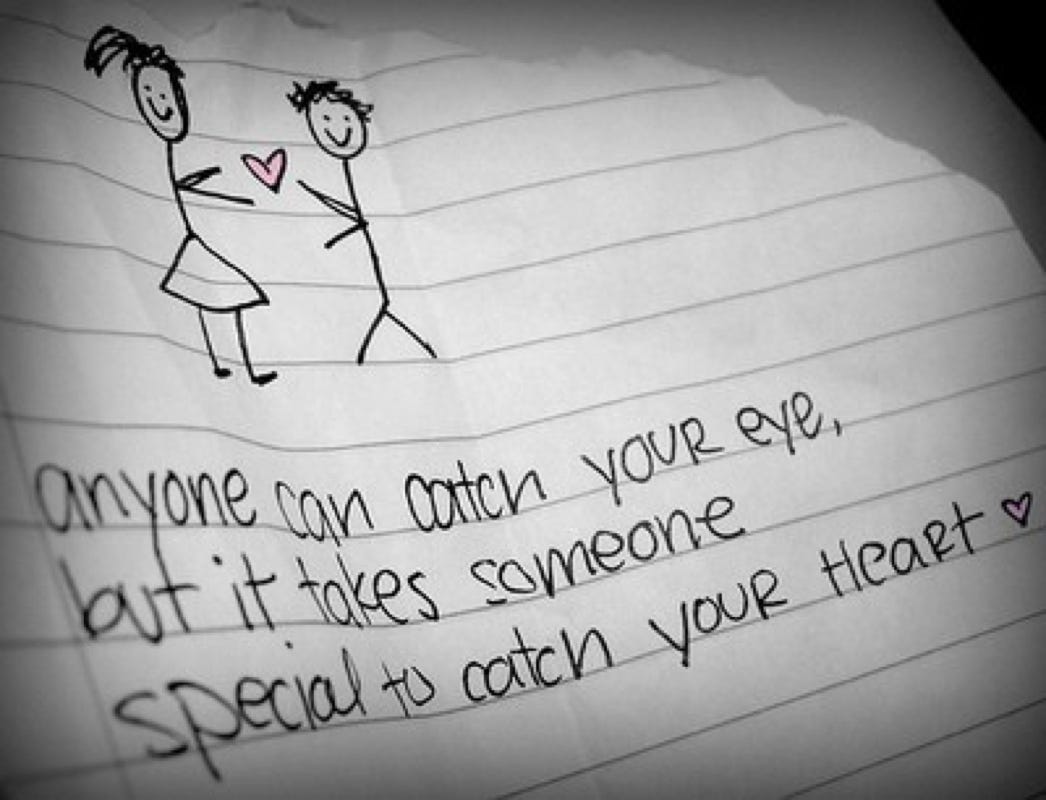 anyone can catch YOUR eye,
but it takes someone
special to catch YOUR HeaRt